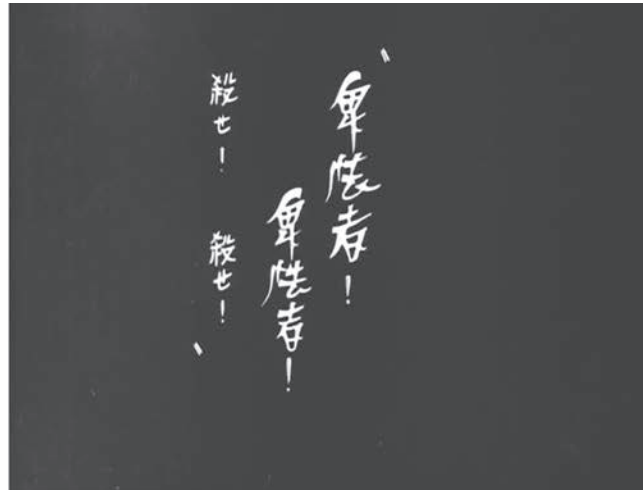 〝卑怯者!
卑怯者!
殺せ!
殺せ!〟